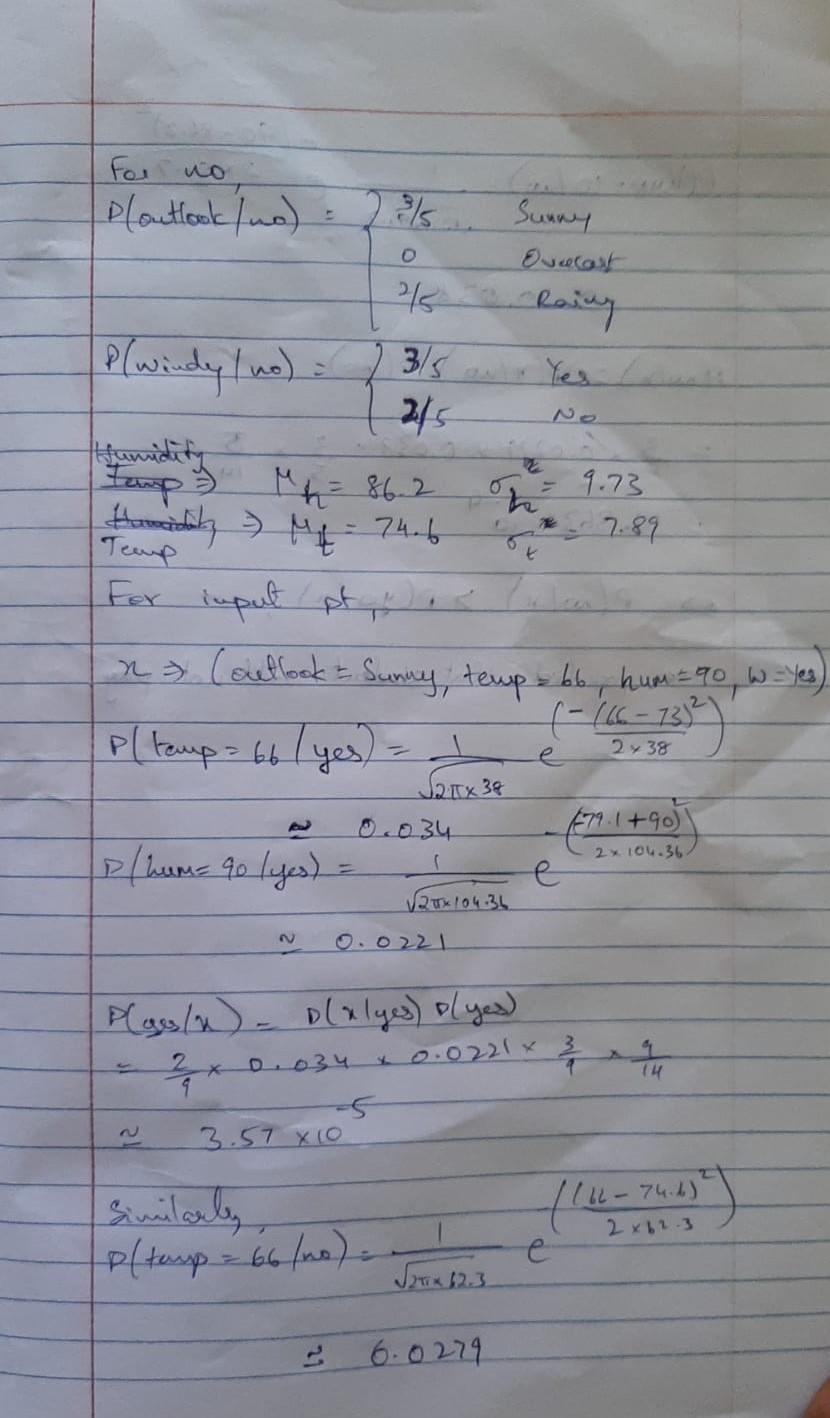 For no,
P(outlook/no) = { 3/5 Sunny
0 Overcast
2/5 Rainy
P(windy/no) = { 3/5 Yes
2/5 No
Humidity
Temp ⇒ μh = 86.2 σh = 9.73
Humidity ⇒ μt = 74.6 σt = 7.89
Temp
For input pt,
x ⇒ (outlook = Sunny, temp = 66, hum = 90, w = Yes)
P(temp = 66/yes) = 1/√2π×38 e^(-(66-73)²/2×38)
≃ 0.034
P(hum = 90/yes) = 1/√2π×104.36 e^-((-79.1+90)²/2×104.36)
≃ 0.0221
P(yes/x) = P(x/yes) P(yes)
= 2/9 × 0.034 × 0.0221 × 3/9 × 9/14
≃ 3.57 × 10^-5
Similarly,
P(temp = 66/no) = 1/√2π×62.3 e^-((66-74.6)²/2×62.3)
≃ 0.0279